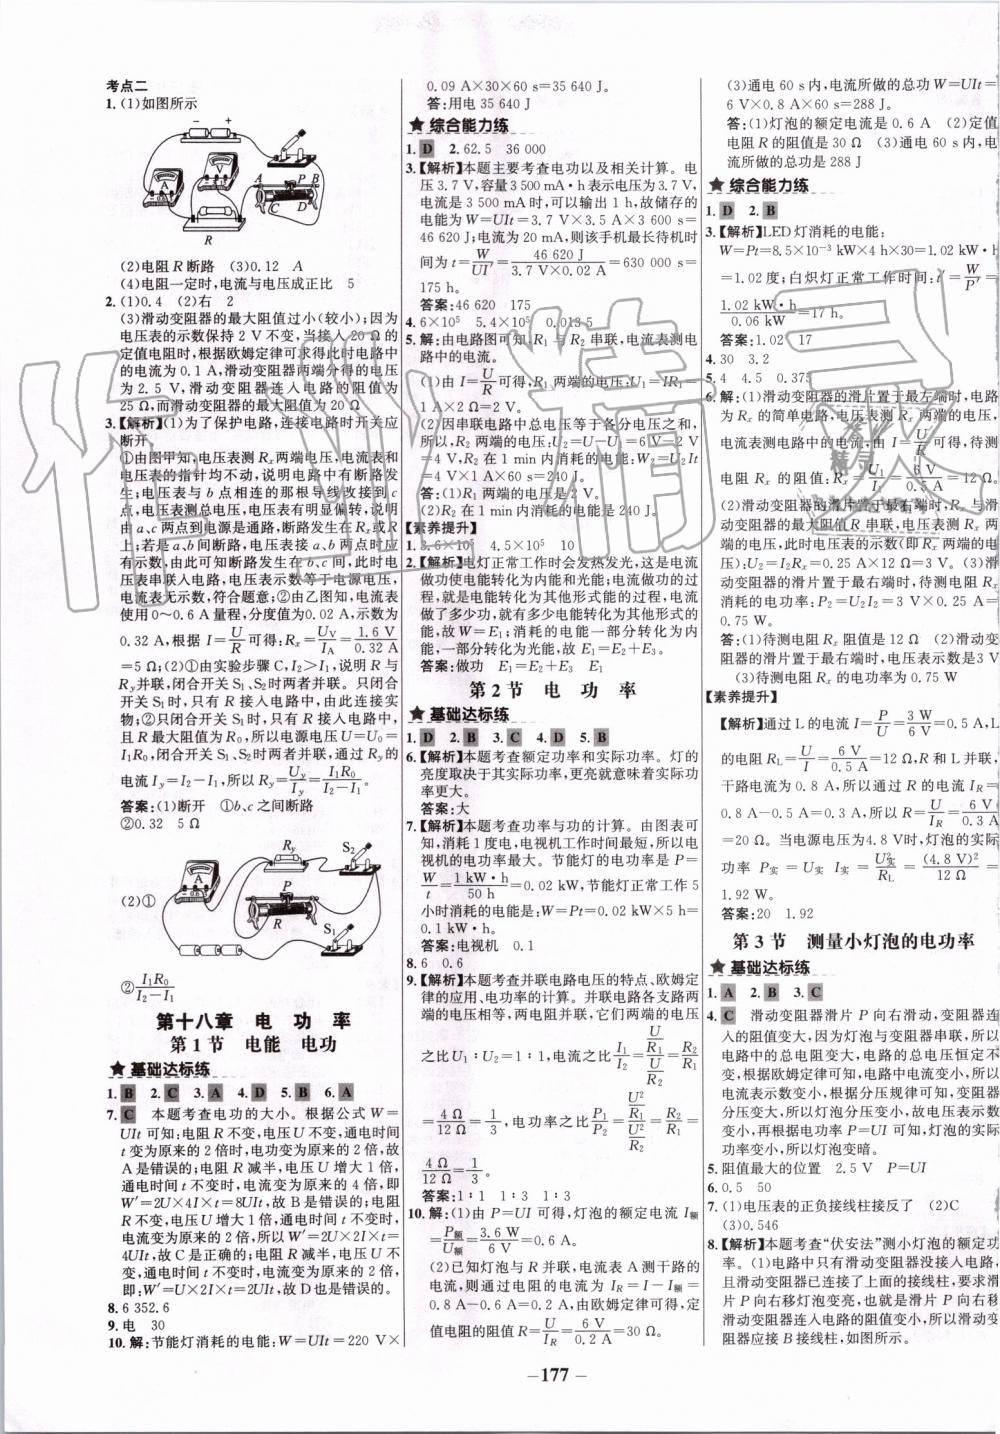 考点二
1.(1)如图所示
− +
A
V
A P B
C D
R
(2)电阻R断路 (3)0.12 A
(4)电阻一定时,电流与电压成正比 5
2.(1)0.4 (2)右 2
(3)滑动变阻器的最大阻值过小(较小);因为
电压表的示数保持2 V不变,当接入20 Ω的
定值电阻时,根据欧姆定律可求得此时电路中
的电流为0.1 A,滑动变阻器两端分得的电压
为2.5 V,滑动变阻器连入电路的阻值为
25 Ω,而滑动变阻器的最大阻值为20 Ω
3.【解析】(1)为了保护电路,连接电路时开关应
断开。
①由图甲知:电压表测Rx两端电压,电流表和
电压表的指针均不动,说明电路中有断路发
生。电压表与b点相连的那根导线改接到c
点,电压表测总电压,电压表有明显偏转,说明
由a、c两点到电源是通路,断路发生在Rx或R
上;若是a、b间断路,电压表接a、b两点时应
有示数,由此可知断路发生在b、c间,此时电
压表串联入电路,电压表示数等于电源电压,
电流表无示数,符合题意;②由乙图知,电流表
使用0~0.6 A量程,分度值为0.02 A,示数为
0.32 A,根据I=U/R可得:Rx=UV/IA=1.6 V/0.32 A
=5 Ω;(2)①由实验步骤C,I2>I1,说明R与
Ry并联,闭合开关S1、S2时两者并联。只闭合
开关S1时,只有R接入电路中,由此连接实物;
②只闭合S1时,只有R接入电路中,
且R最大阻值为R0,所以电源电压U=U0=
I1R0,闭合开关S1、S2时两者并联,通过Ry的
电流Iy=I2−I1,所以Ry=Uy/Iy=I1R0/(I2−I1)
答案:(1)断开 ①b、c之间断路
②0.32 5 Ω
Ry S2
A
P
R S1
(2)①
②I1R0/(I2−I1)
第十八章 电功率
第1节 电能 电功
★基础达标练
1.B 2.C 3.A 4.D 5.B 6.A
7.C 本题考查电功的大小。根据公式W=
UIt可知:电阻R不变,电压U不变,通电时间
t变为原来的2倍时,电功变为原来的2倍,故
A是错误的;电阻R减半,电压U增大1倍,
通电时间t不变时,电流变为原来的4倍,即
W′=2U×4I×t=8UIt,故B是错误的;电阻
R不变,电压U增大1倍,通电时间t不变时,
电流变为原来的2倍,即:W′=2U×2I×t=
4UIt,故C是正确的;电阻R减半,电压U不
变,通电时间t不变时,电流变为原来的2倍,
即:W′=U×2I×t=2UIt,故D也是错误的。
8.6 352.6
9.电 30
10.解:节能灯消耗的电能:W=UIt=220 V×
0.09 A×30×60 s=35 640 J。
答:用电35 640 J。
★综合能力练
1.D 2.62.5 36 000
3.【解析】本题主要考查电功以及相关计算。电
压3.7 V,容量3 500 mA·h表示电压为3.7 V,
电流是3 500 mA时,可以输出1 h,故储存的
电能为W=UIt=3.7 V×3.5 A×3 600 s=
46 620 J;电流为20 mA,则该手机最长待机时
间为t=W/UI′=46 620 J/(3.7 V×0.02 A)=630 000 s=
175 h。
答案:46 620 175
4.6×10⁵ 5.4×10⁵ 0.013 5
5.解:由电路图可知,R1与R2串联,电流表测电
路中的电流。
(1)由I=U/R可得,R1两端的电压:U1=IR1=
1 A×2 Ω=2 V。
(2)因串联电路中总电压等于各分电压之和,
所以,R2两端的电压:U2=U−U1=6 V−2 V
=4 V,R2在1 min内消耗的电能:W2=U2It
=4 V×1 A×60 s=240 J。
答:(1)R1两端的电压是2 V。
(2)R2在1 min内消耗的电能是240 J。
【素养提升】
1.3.6×10⁵ 4.5×10⁵ 10
2.【解析】电灯正常工作时会发热发光,这是电流
做功使电能转化为内能和光能;电流做功的过
程,就是电能转化为其他形式能的过程,电流
做了多少功,就有多少电能转化为其他形式的
能,故W=E1;消耗的电能一部分转化为内
能,一部分转化为光能,故E1=E2+E3。
答案:做功 E1=E2+E3 E1
第2节 电功率
★基础达标练
1.D 2.B 3.C 4.D 5.B
6.【解析】本题考查额定功率和实际功率。灯的
亮度取决于其实际功率,更亮就意味着实际功
率更大。
答案:大
7.【解析】本题考查功率与功的计算。由图表可
知,消耗1度电,电视机工作时间最短,所以电
视机的电功率最大。节能灯的功率是P=
W/t=1 kW·h/50 h=0.02 kW,节能灯正常工作5
小时消耗的电能是:W=Pt=0.02 kW×5 h=
0.1 kW·h。
答案:电视机 0.1
8.6 0.6
9.【解析】本题考查并联电路电压的特点、欧姆定
律的应用、电功率的计算。并联电路各支路两
端的电压相等,两电阻并联,它们两端的电压
之比U1∶U2=1∶1,电流之比I1/I2=(U/R1)/(U/R2)=R2/R1
=4 Ω/12 Ω=1/3,电功率之比P1/P2=(U²/R1)/(U²/R2)=R2/R1=
4 Ω/12 Ω=1/3。
答案:1∶1 1∶3 1∶3
10.解:(1)由P=UI可得,灯泡的额定电流I额
=P额/U额=3.6 W/6 V=0.6 A。
(2)已知灯泡与R并联,电流表A测干路的
电流,则通过电阻的电流为IR=I−I额=
0.8 A−0.6 A=0.2 A,由欧姆定律可得,定
值电阻的阻值R=U/IR=6 V/0.2 A=30 Ω。
(3)通电60 s内,电流所做的总功W=UIt=
6 V×0.8 A×60 s=288 J。
答:(1)灯泡的额定电流是0.6 A (2)定值
电阻R的阻值是30 Ω (3)通电60 s内,电
流所做的总功是288 J
★综合能力练
1.D 2.B
3.【解析】LED灯消耗的电能:
W=Pt=8.5×10⁻³ kW×4 h×30=1.02 kW·h
=1.02度;白炽灯正常工作时间:t=W/P′=
1.02 kW·h/0.06 kW=17 h。
答案:1.02 17
4.30 3.2
5.4 4.5 0.375
6.解:(1)滑动变阻器的滑片置于最左端时,电路
为Rx的简单电路,电压表测Rx两端的电压,
电流表测电路中的电流;由I=U/R可得,待测
电阻Rx的阻值:Rx=U1/I1=6 V/0.5 A=12 Ω
(2)滑动变阻器的滑片置于最右端时,Rx与滑
动变阻器的最大阻值R串联,电压表测Rx两端
的电压,此时电压表的示数(即Rx两端的电
压):U2=I2Rx=0.25 A×12 Ω=3 V。(3)滑
动变阻器的滑片置于最右端时,待测电阻Rx
消耗的电功率:P2=U2I2=3 V×0.25 A=
0.75 W。
答:(1)待测电阻Rx阻值是12 Ω (2)滑动变
阻器的滑片置于最右端时,电压表示数是3 V
(3)待测电阻Rx的电功率为0.75 W
【素养提升】
【解析】通过L的电流I=P/U=3 W/6 V=0.5 A,L
的电阻RL=U/I=6 V/0.5 A=12 Ω,R和L并联,
干路电流为0.8 A,所以通过R的电流IR=
0.8 A−0.5 A=0.3 A,所以R=U/IR=6 V/0.3 A
=20 Ω。当电源电压为4.8 V时,灯泡的实际
功率P实=U实I实=U实²/RL=(4.8 V)²/12 Ω=
1.92 W。
答案:20 1.92
第3节 测量小灯泡的电功率
★基础达标练
1.A 2.B 3.C
4.C 滑动变阻器滑片P向右滑动,变阻器连
入的阻值变大,因为灯泡与变阻器串联,所以
电路中的总电阻变大,电路的总电压恒定不
变,根据欧姆定律可知,电路中电流变小,故
电流表示数变小;根据分压规律可知,变阻器
分压变大,所以灯泡分压变小,故电压表示数
变小,再根据电功率P=UI可知,灯泡的实际
功率变小,所以灯泡变暗。
5.阻值最大的位置 2.5 V P=UI
6.0.5 50
7.(1)电压表的正负接线柱接反了 (2)C
(3)0.546
8.【解析】本题考查“伏安法”测小灯泡的额定功
率。(1)电路中只有滑动变阻器没接入电路,
且滑动变阻器已连接了上面的接线柱,要求滑
片P向右移灯泡变亮,也就是滑动变阻器的滑
片P向右移动连入电路的阻值变小,所以滑动变
阻器应接B接线柱,如图所示。
−177−
作业精灵